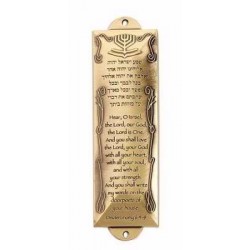 שמע ישראל יהוה
אלהינו יהוה אחד
ואהבת את יהוה
אלהיך בכל לבבך ובכל
נפשך ובכל
Hear, O Israel,
the Lord, our God,
the Lord is One,
And you shall love
the Lord, your God
with all your heart,
with all your soul,
and with all
your strength.
And you shall write
my words on the
doorposts of
your house.
Deuteronomy 6:4-9